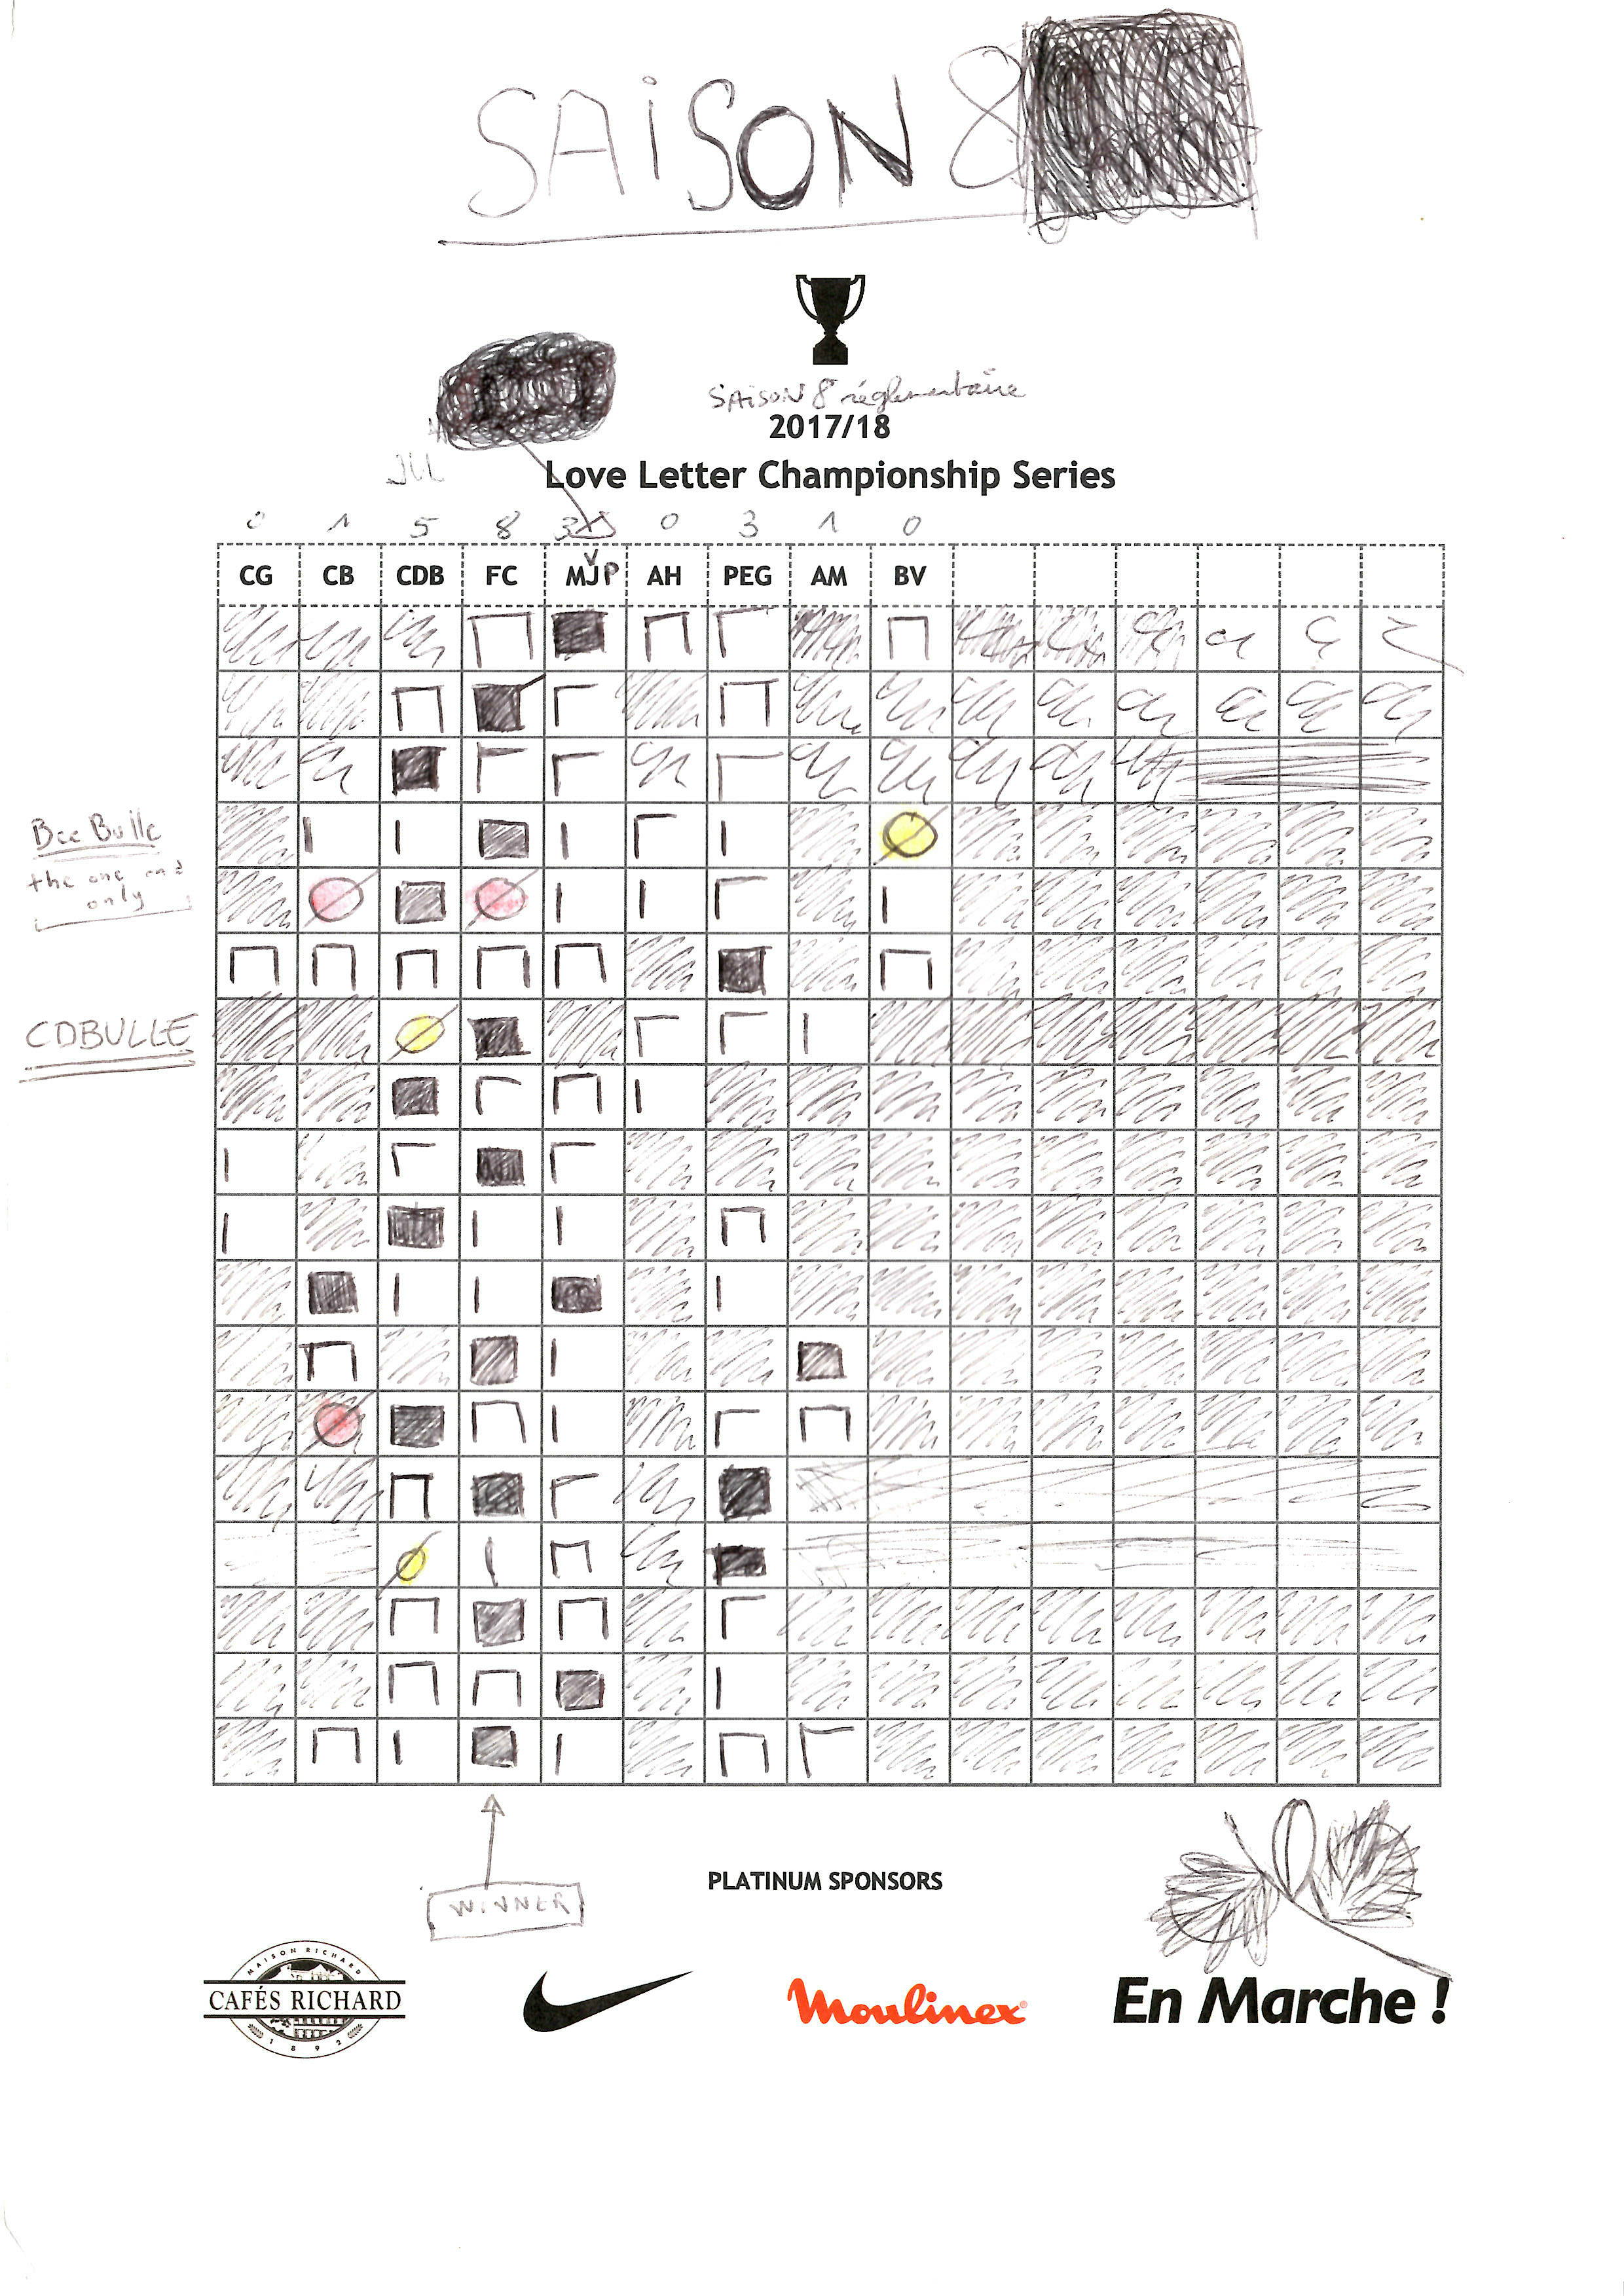 SAiSON 8
SAiSON 8 réglementaire
2017/18
Love Letter Championship Series
0 1 5 8 3 0 3 1 0
CG CB CDB FC MJP AH PEG AM BV
Bee Bulle
the one and
only
CDBULLE
WINNER
PLATINUM SPONSORS
MAISON RICHARD
CAFÉS RICHARD
1892
Moulinex
En Marche !